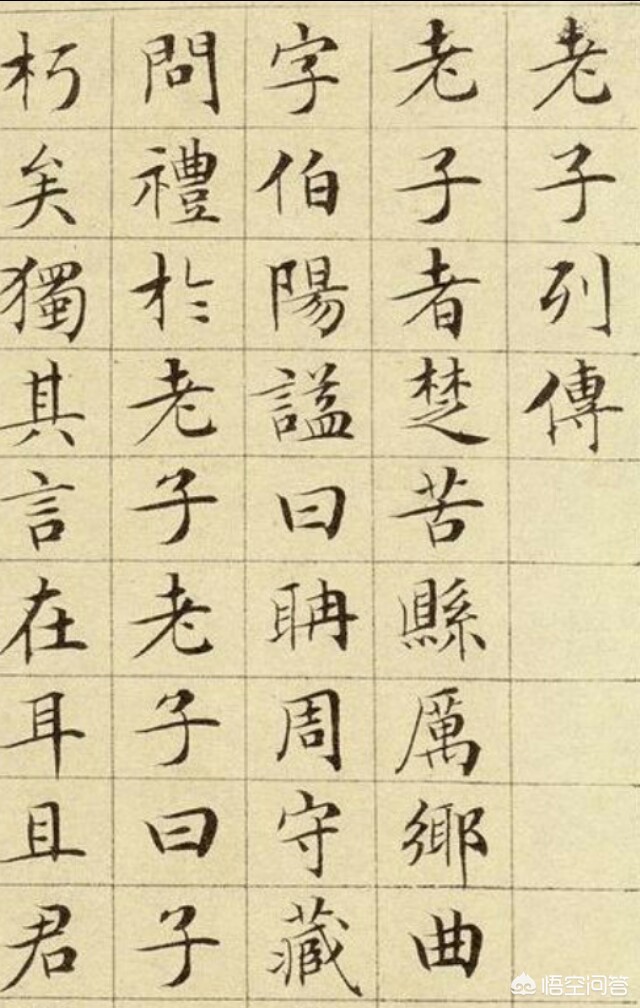 老子列傳
老子者楚苦縣厲鄉曲
字伯陽謚曰聃周守藏
問禮於老子老子曰子
朽矣獨其言在耳且君
悟空问答